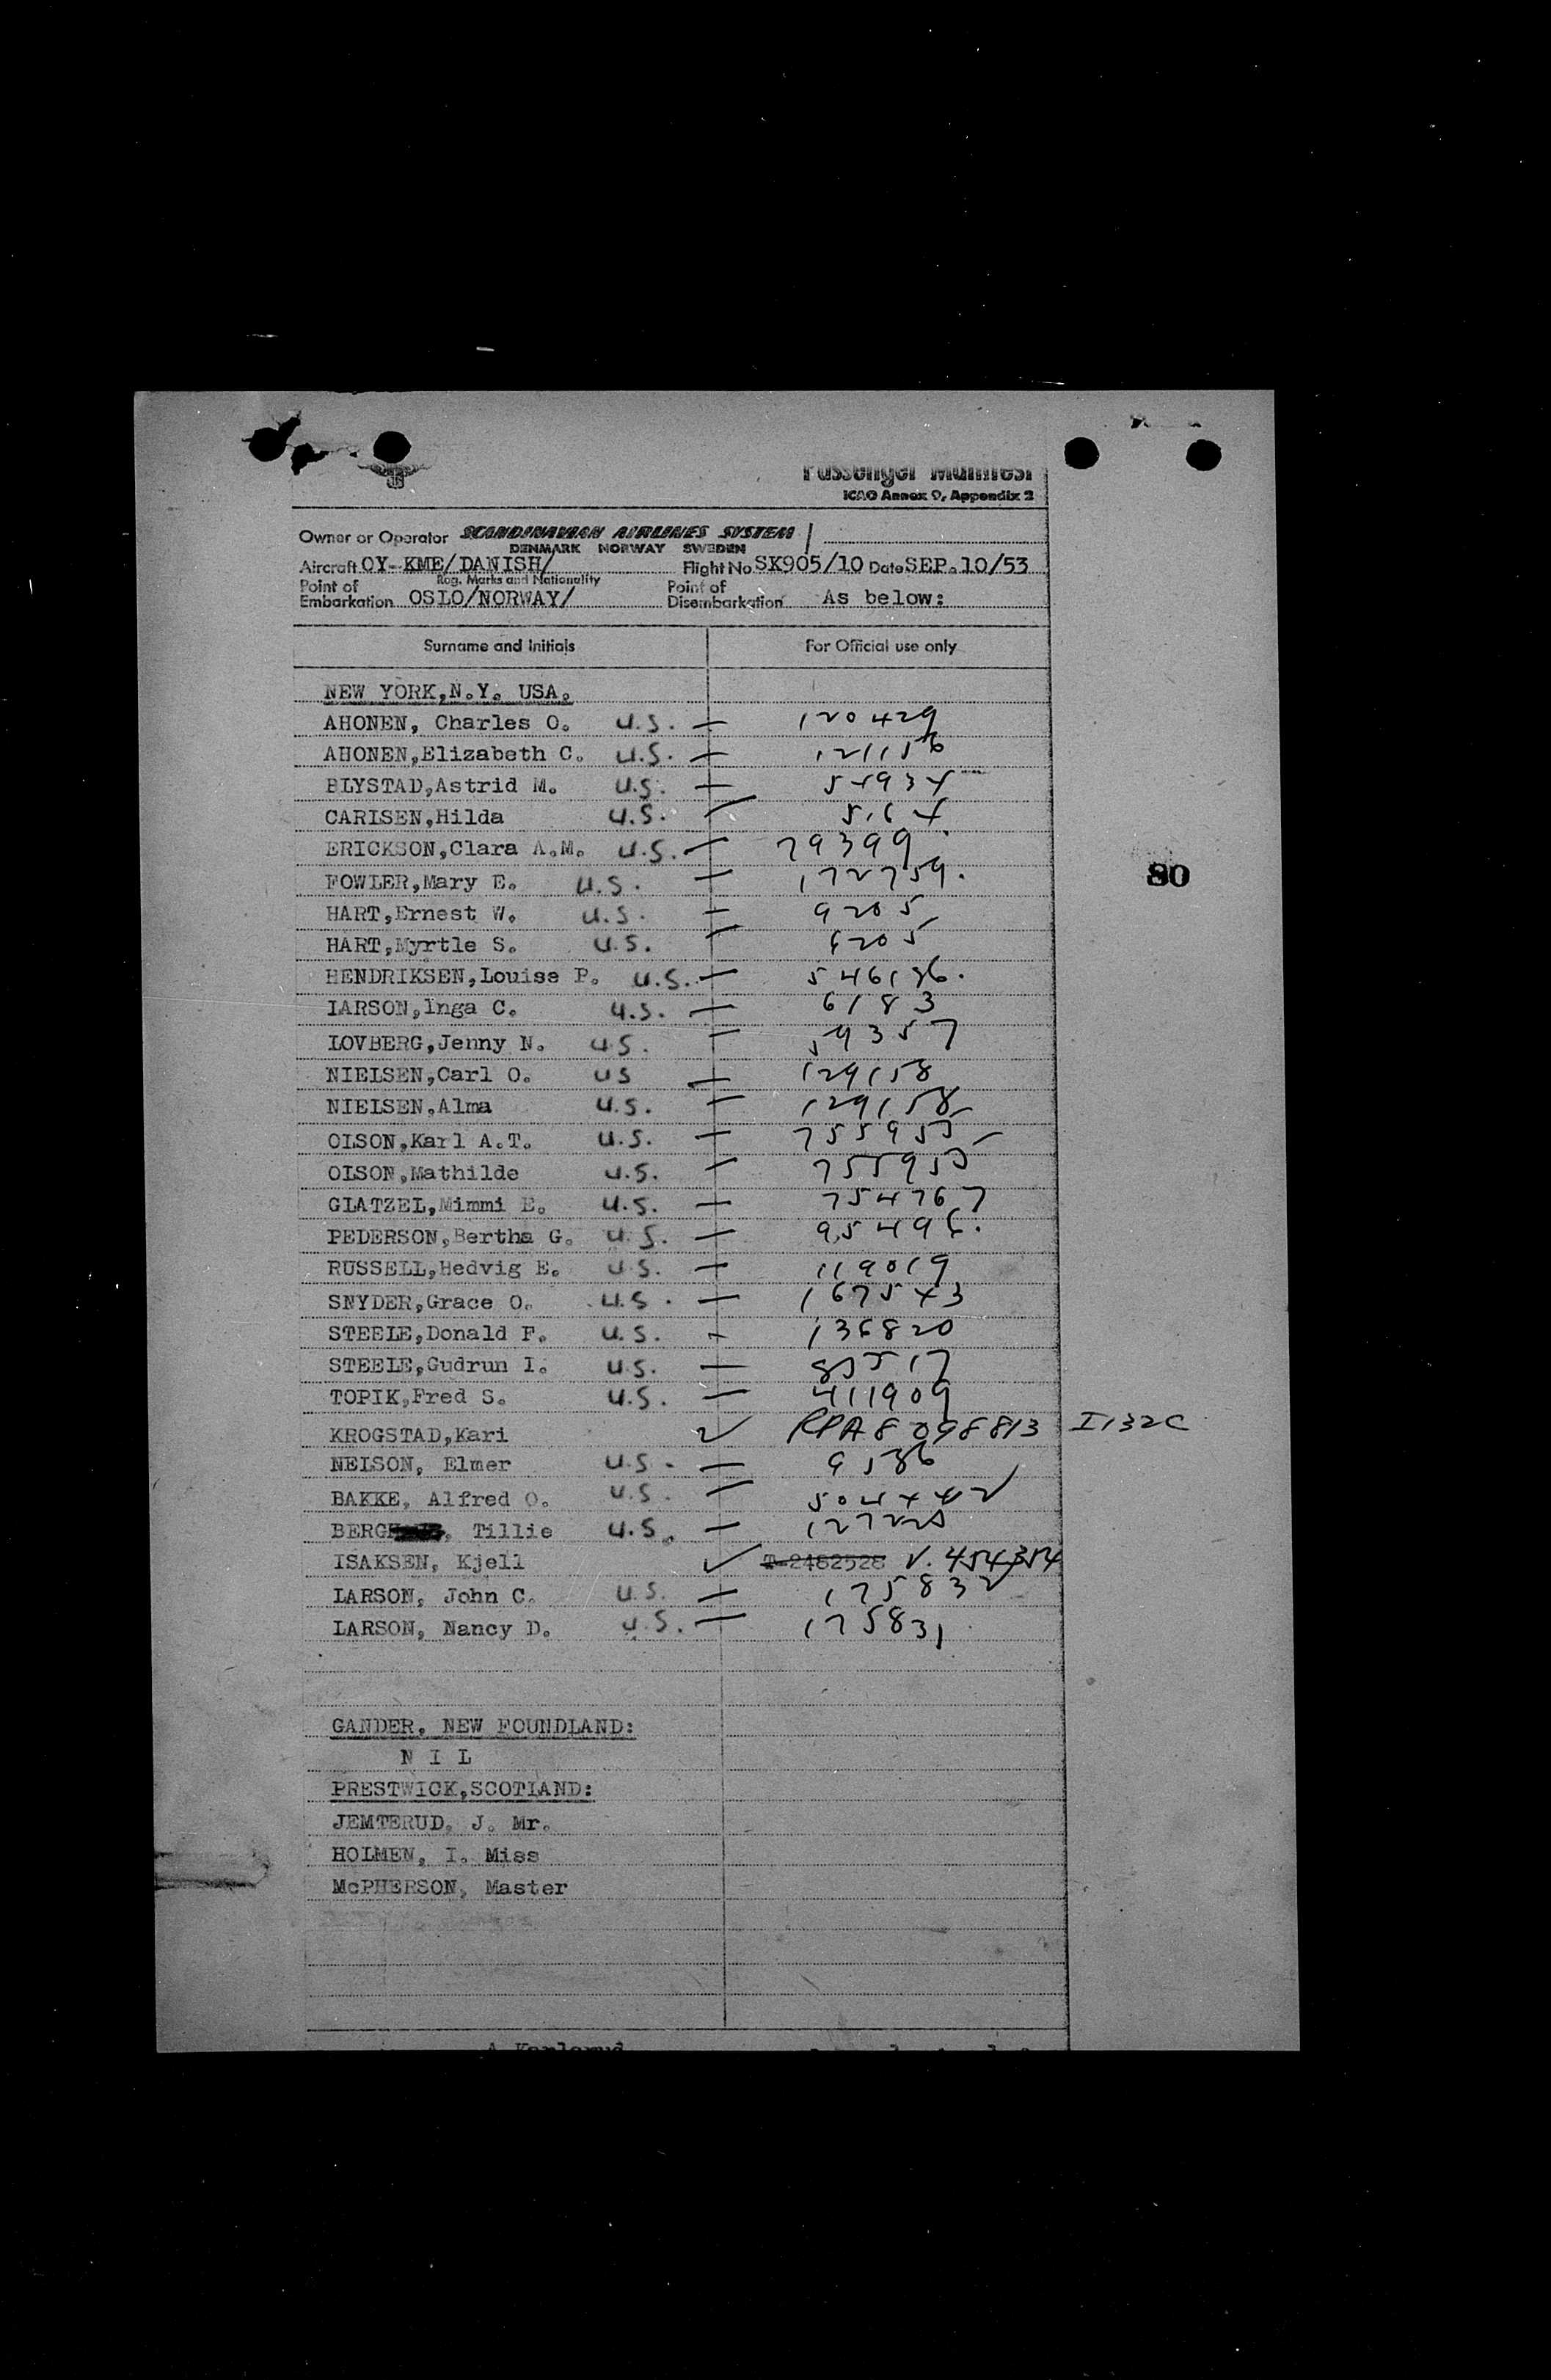 Passenger Manifest
ICAO Annex 9, Appendix 2
Owner or Operator SCANDINAVIAN AIRLINES SYSTEM
DENMARK NORWAY SWEDEN
Aircraft OY-KME/DANISH/ Flight No SK905/10 Date SEP. 10/53
Reg. Marks and Nationality
Point of Embarkation OSLO/NORWAY/ Point of Disembarkation As below:
Surname and Initials For Official use only
NEW YORK,N.Y. USA.
AHONEN, Charles O. U.S. — 120429
AHONEN,Elizabeth C. U.S. — 121156
BLYSTAD,Astrid M. U.S. —
CARLSEN,Hilda U.S. —
ERICKSON,Clara A.M. U.S. — 79399
80
FOWLER,Mary E. U.S. — 172759.
HART,Ernest W. U.S. — 9205
HART,Myrtle S. U.S. —
HENDRIKSEN,Louise P. U.S. — 546136.
LARSON,Inga C. U.S. — 6183
LOVBERG,Jenny N. U.S. — 59357
NIELSEN,Carl O. US — 129158
NIELSEN,Alma U.S. — 129158
OLSON,Karl A.T. U.S. — 755955
OLSON,Mathilde U.S. — 755955
GLATZEL,Mimmi E. U.S. — 754767
PEDERSON,Bertha G. U.S. — 95496.
RUSSELL,Hedvig E. U.S. — 119019
SNYDER,Grace O. U.S. — 167543
STEELE,Donald F. U.S. — 136820
STEELE,Gudrun I. U.S. —
TOPIK,Fred S. U.S. — 411909
KROGSTAD,Kari ✓ RPA8098813 I132C
NELSON, Elmer U.S. — 9536
BAKKE, Alfred O. U.S. — 504442
BERG, Tillie U.S. —
ISAKSEN, Kjell ✓ T-2482528 V. 454354
LARSON, John C. U.S. — 175832
LARSON, Nancy D. U.S. — 175831
GANDER, NEW FOUNDLAND:
N I L
PRESTWICK,SCOTLAND:
JEMTERUD, J. Mr.
HOLMEN, I. Miss
McPHERSON, Master